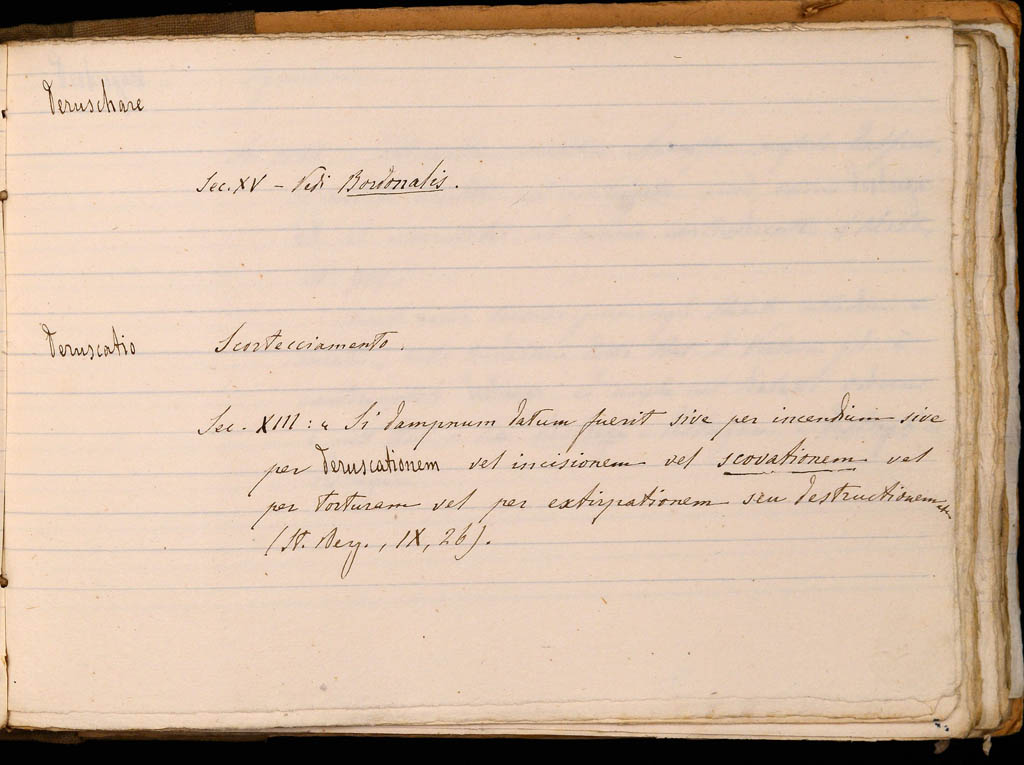 Deruschare
Sec. XV - Vedi Bordonalis.
Deruscatio Scortecciamento.
Sec. XIII: « Si dampnum datum fuerit sive per incendium sive
per deruscationem vel incisionem vel scovationem vel
per torturam vel per extirpationem seu destructionem
(St. Reg., IX, 26).